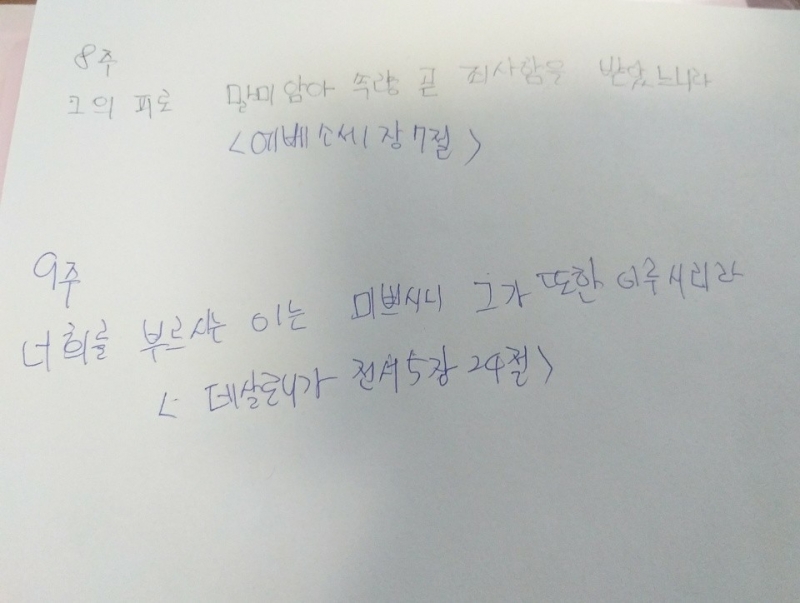 8주
그의 피로 말미암아 속량 곧 죄사함을 받았느니라
<에베소서 1장 7절>
9주
너희를 부르시는 이는 미쁘시니 그가 또한 이루시리라
<데살로니가 전서 5장 24절>